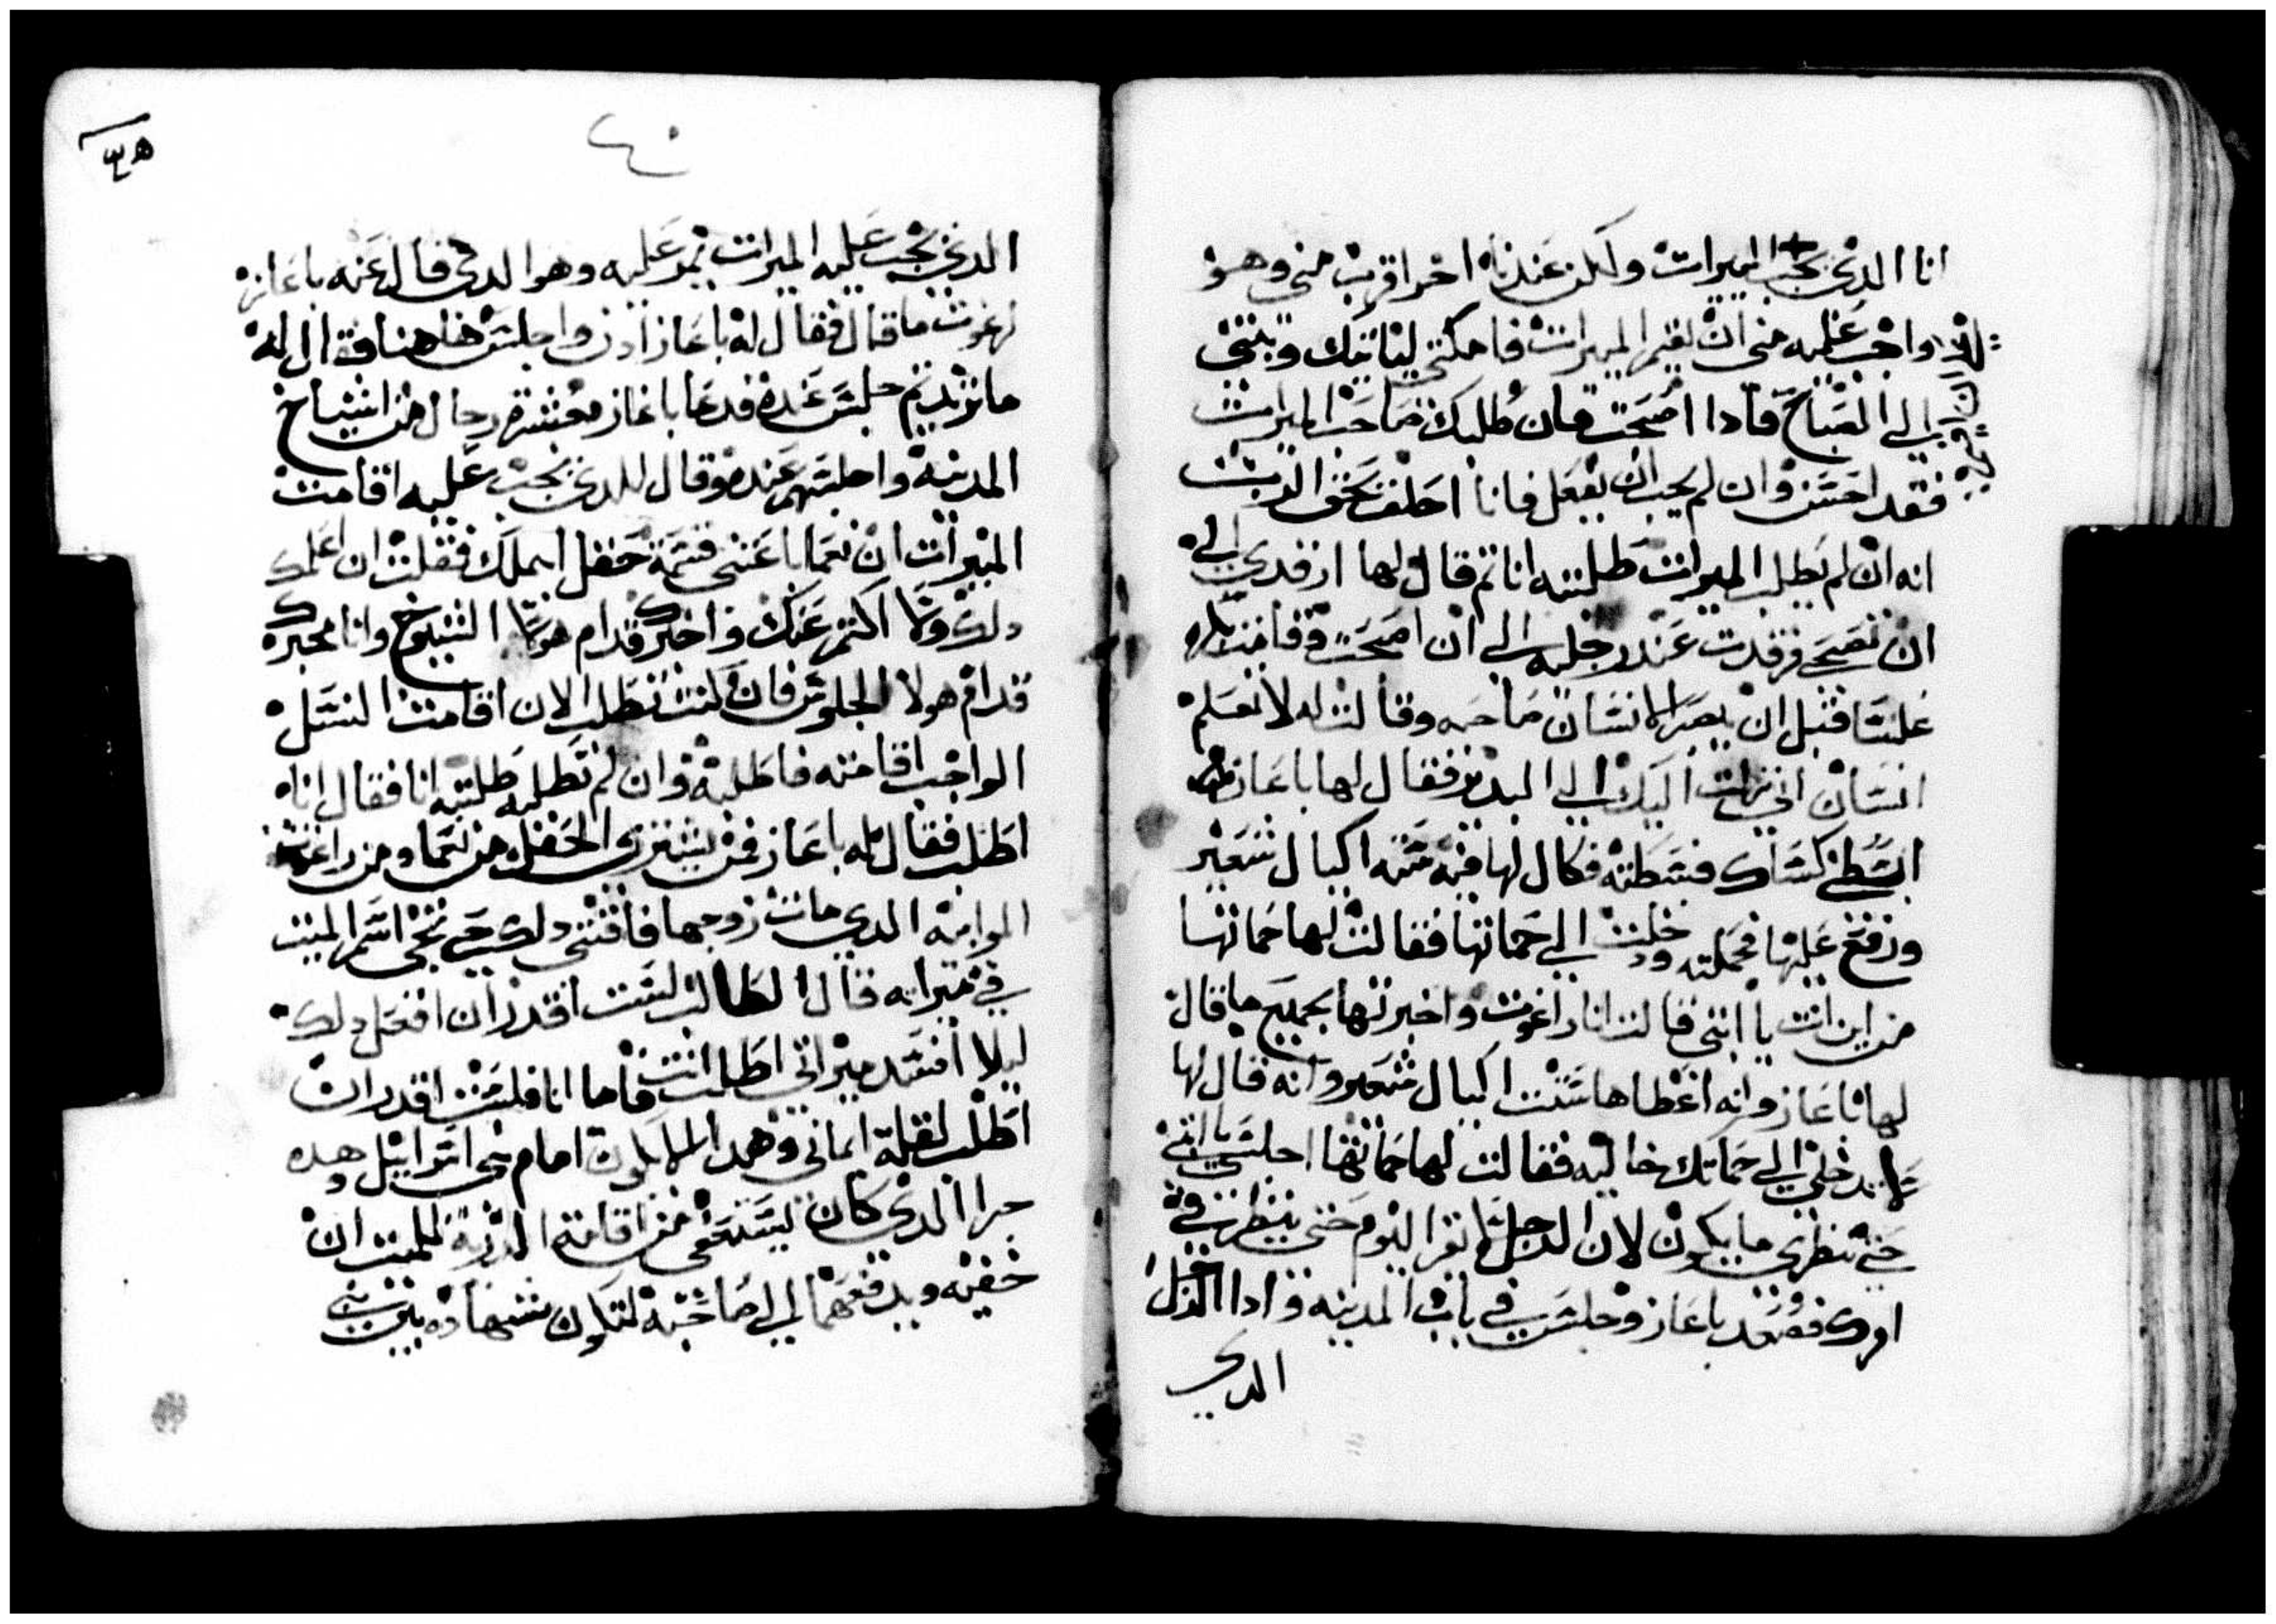 انا الدي يجب الميرات ولكن عندنا اخر اقرب مني وهو
واجب عليه مني ان يقيم الميرات فامكتي ليلتك وبيتي
الي الصباح فادا اصبحت فان طلبك صاحب الميرات
فقد احسن وان لم يحب ان يفعل فانا احلف بحق الرب
انه ان لم يطلب الميرات طلبته انا تم قال لها ارقدي الي
ان تصبحي فرقدت عند رجليه الي ان اصبحت وقامت
غلسا قبل ان يصر الانسان صاحبه وقالت له لا يعلم
انسان اني نزلت اليك الي البيدر فقال لها باعاز
ابسطي كساك فبسطته فكال لها فيه سته اكيال شعير
ورفع عليها فحملته ودخلت الي حماتها فقالت لها حماتها
من اين انت يا ابنتي قالت انا راغوت واخبرتها بجميع ما قال
لها باعاز وانه اعطاها ستت اكيال شعير وانه قال لها
لا تدخلي الي حماتك خاليه فقالت لها حماتها اجلسي يا ابنتي
حتي تنظري ما يكون لان الرجل لا يقر اليوم حتي ينظر في
امرك فصعد باعاز وجلس في باب المدينه وادا الرجل
الدي
٤٠
الدي يجب عليه الميرات يمر عليه وهو الدي قال عنه باعاز
لراغوت ما قال فقال له باعاز ادن واجلس هاهنا فقال له
ما تريد تم جلس عنده فدعا باعاز معشرة رجال من اشياخ
المدينة واجلسهم عنده وقال للدي يجب عليه اقامت
الميرات ان نعما باعتني قسمة حقل ابيملك فقلت ان اعلمك
دلك ولا اكتم عنك واخبرك قدام هولا الشيوخ وانا مخبرك
قدام هولا الجلوس فان كنت تطلب الان اقامت النسل
الواجب اقامته فاطلبه وان لم تطلبه طلبته انا فقال انا
اطلب فقال له باعاز فمن يشتري الحقل من نعما ومن راغوت
الموابية الدي مات زوجها فاقتني دلك حتي تحي اسم الميت
في ميراته قال الطالب لست اقدر ان افعل دلك
ليلا افسد ميراتي اطلب انت فاما انا فلست اقدر ان
اطلب لقلة ايماني وهدا لا يكون امام بني اسراييل وهده
جرا الدي كان يستعفي من اقامة الدرية للميت ان
خفيه ويدفعهما الي صاحبه لتكون شهاده بين بني